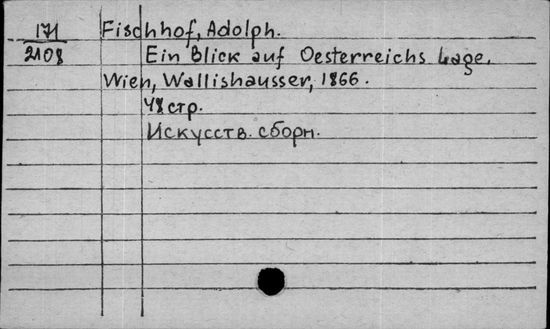 171
2108
Fischhof, Adolph.
Ein Blick auf Oesterreichs Lage.
Wien, Wallishausser, 1866.
48 стр.
Искусств. сборн.